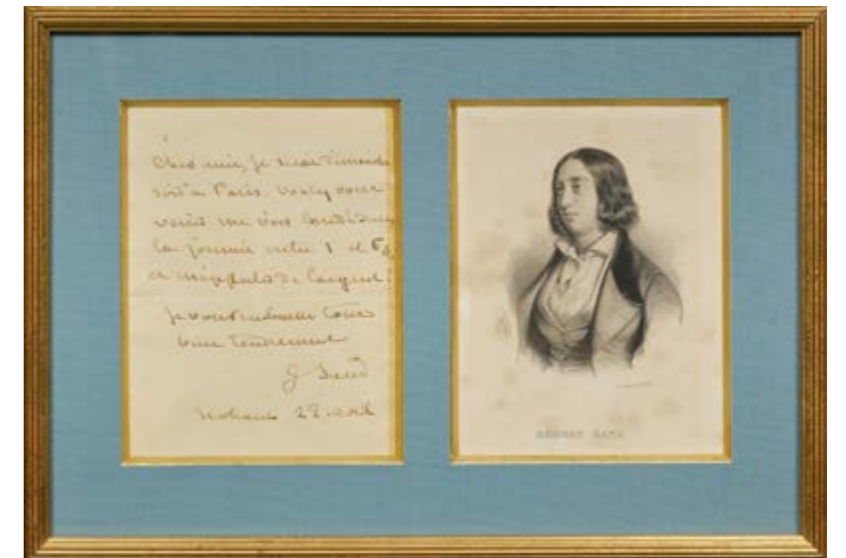 Cher ami, je serai dimanche
soir à Paris. Voulez vous
venir me voir lundi dans
la journée entre 1 et 6 h,
et de l'argent
Je vous embrasse tous
bien tendrement
G Sand
Nohant 28 avril
GEORGE SAND